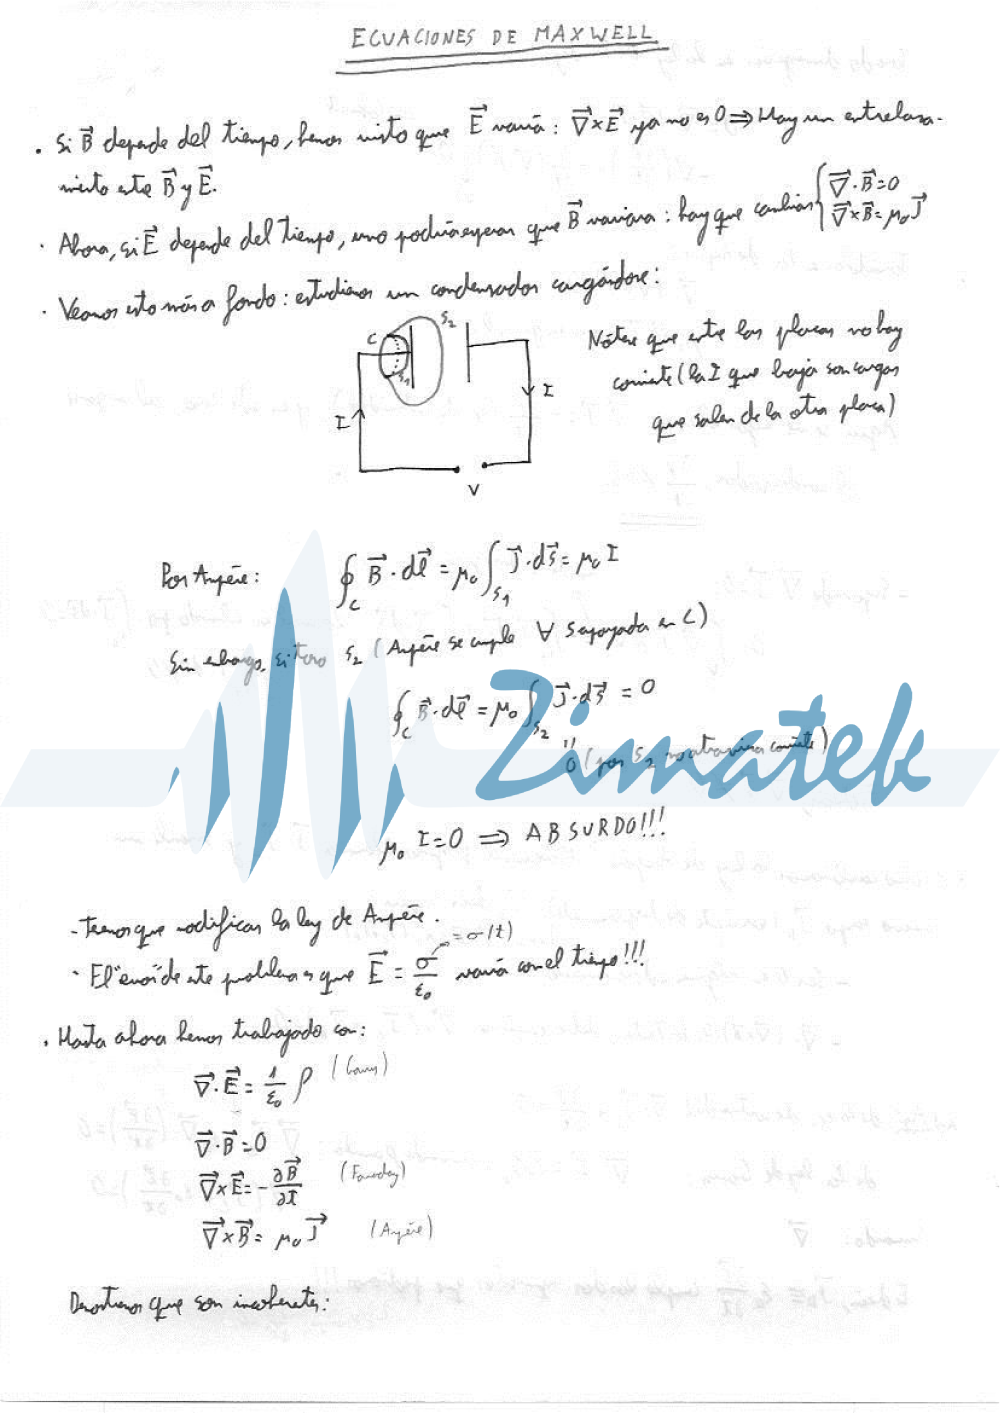 ECUACIONES DE MAXWELL
· Si B⃗ depende del tiempo, hemos visto que E⃗ varía: ∇⃗×E⃗ ya no es 0 ⇒ Hay un entrelaza-
miento entre B⃗ y E⃗.
· Ahora, si E⃗ depende del tiempo, uno podría esperar que B⃗ variara: hay que cambiar { ∇⃗·B⃗=0
∇⃗×B⃗=μ₀J⃗
· Veamos esto más a fondo: estudiamos un condensador cargándose:
C S₁ S₂
I I
V
Nótese que entre las placas no hay
corriente (la I que baja son cargas
que salen de la otra placa)
Por Ampère: ∮_C B⃗·dl⃗ = μ₀ ∫_S₁ J⃗·ds⃗ = μ₀ I
Sin embargo, si tomo S₂ (Ampère se cumple ∀ S apoyada en C)
∮_C B⃗·dl⃗ = μ₀ ∫_S₂ J⃗·ds⃗ = 0
0 (por S₂ no atraviesa corriente)
μ₀ I=0 ⇒ ABSURDO!!!
- Tenemos que modificar la ley de Ampère.
· El "error" de este problema es que E⃗ = σ/ε₀ varía con el tiempo!!!
=σ(t)
· Hasta ahora hemos trabajado con:
∇⃗·E⃗ = 1/ε₀ ρ (Gauss)
∇⃗·B⃗=0
∇⃗×E⃗=-∂B⃗/∂t (Faraday)
∇⃗×B⃗= μ₀J⃗ (Ampère)
Demostremos que son incoherentes:
Zimatek